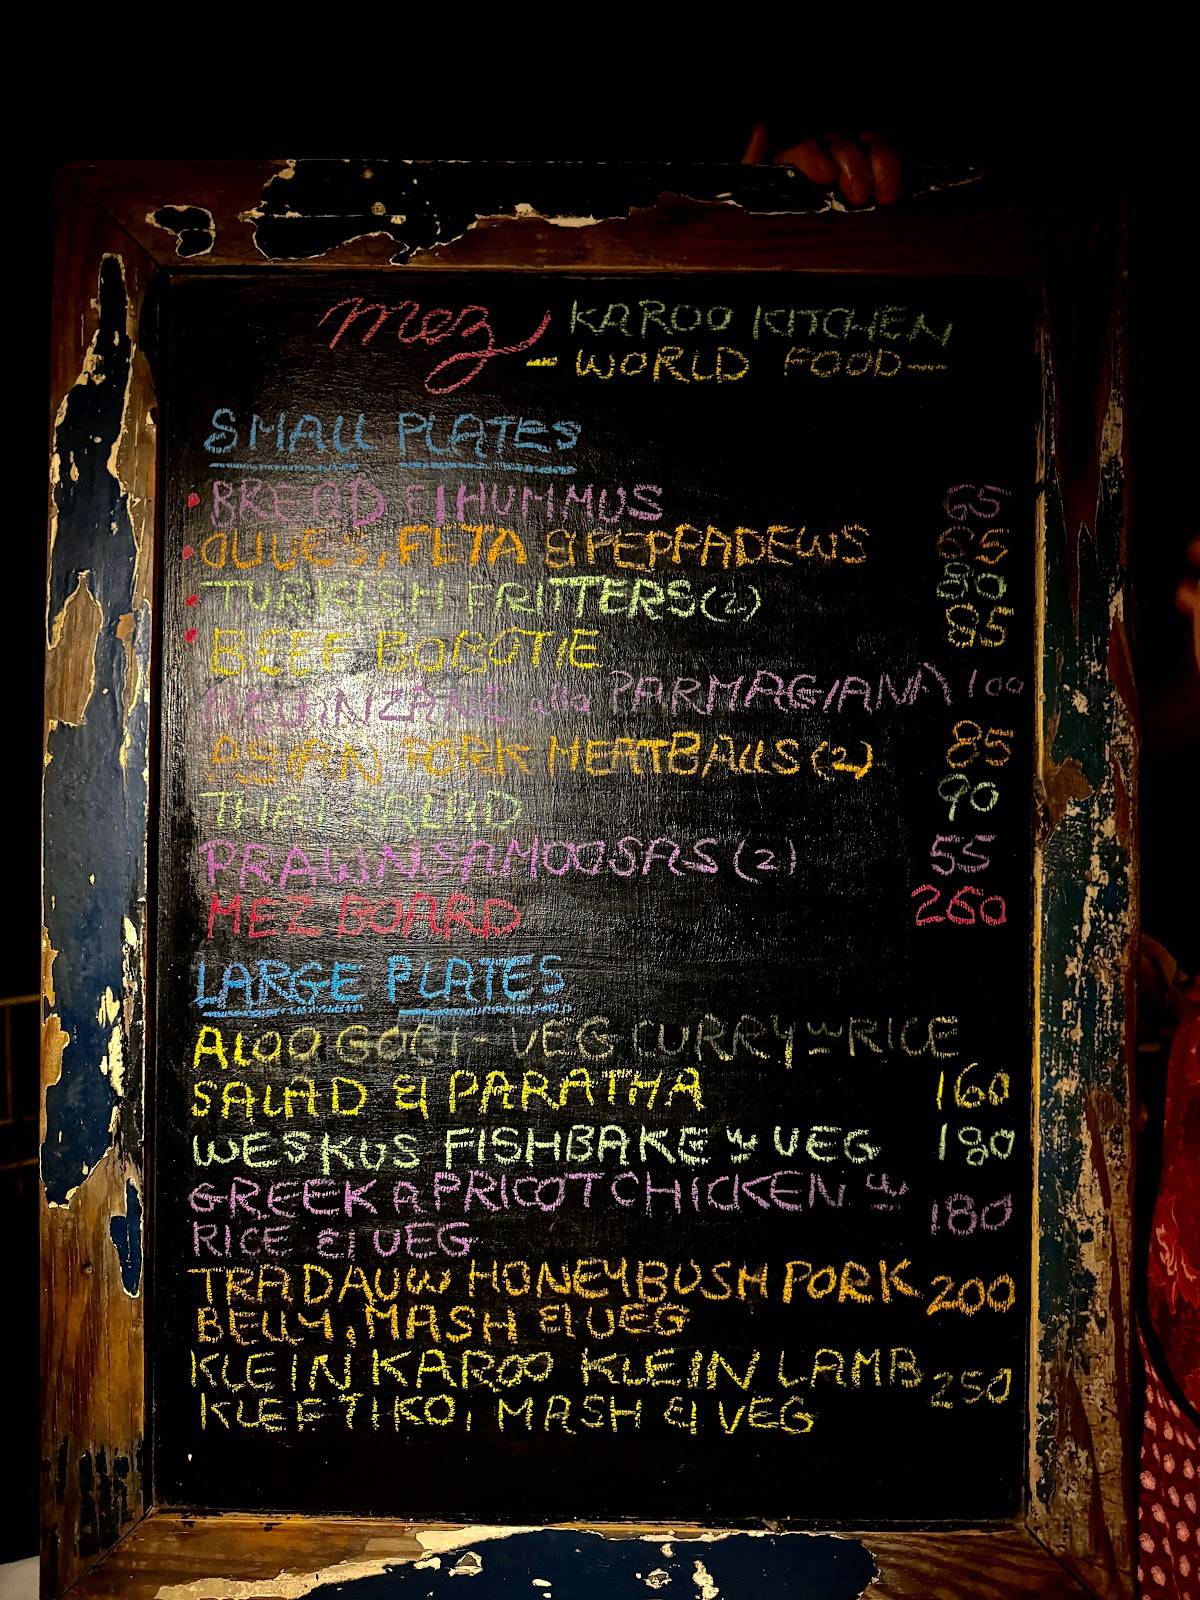 mez KAROO KITCHEN
- WORLD FOOD -
SMALL PLATES
• BREAD & HUMMUS 65
• OLIVES, FETA & PEPPADEWS 65
• TURKISH FRITTERS (2) 80
• BEEF BOBOTIE 85
MELINZANE alla PARMAGIANA 100
ASIAN PORK MEATBALLS (2) 85
THAI SALAD 90
PRAWN SAMOOSAS (2) 55
MEZ BOARD 260
LARGE PLATES
ALOO GOBI - VEG CURRY w RICE
SALAD & PARATHA 160
WESKUS FISHBAKE w VEG 180
GREEK APRICOT CHICKEN w 180
RICE & VEG
TRADAUW HONEYBUSH PORK 200
BELLY, MASH & VEG
KLEIN KAROO KLEIN LAMB 250
KLEFTIKO, MASH & VEG